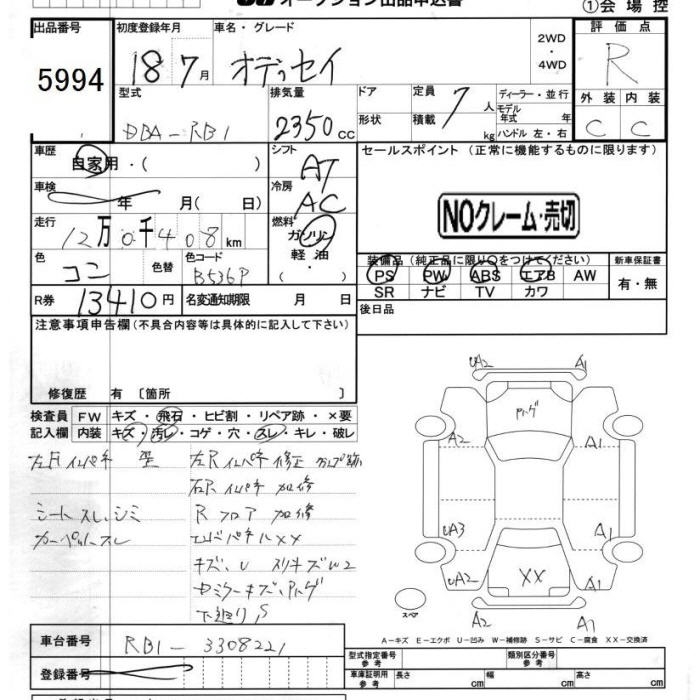 オークション出品申込書
①会場控
出品番号
5994
初度登録年月
18 7月
車名・グレード
オデッセイ
2WD
・
4WD
評価点
R
外装 内装
C C
型式
DBA-RB1
排気量
2350cc
ドア
形状
定員 7人
積載 kg
ディーラー・並行
モデル年式 年
ハンドル 左・右
車歴
自家用・( )
シフト
AT
セールスポイント (正常に機能するものに限ります)
NOクレーム・売切
車検
年 月( 日)
冷房
AC
走行
12万0千408km
燃料
ガソリン
軽油
・
色
コン
色替
色コード
B536P
装備品(純正品に限り○をつけてください)
PS PW ABS エアB AW
SR ナビ TV カワ
新車保証書
有・無
R券
13410円
名変通知期限 月 日
後日品
注意事項申告欄(不具合内容等は具体的に記入して下さい)
修復歴 有〔箇所 〕
検査員
記入欄
FW キズ・飛石・ヒビ割・リペア跡・×要
内装 キズ・汚レ・コゲ・穴・スレ・キレ・破レ
左Fインパネ 歪
左Rインパネ修正
右Rインパネ加修
シートスレ、シミ
Rフロア加修
カーペットスレ
エンドパネルXX
下廻りS
UA2 A1
A2 A1
UA3 A1
UA2 XX A1
A2 A1
スペア
A-キズ E-エクボ U-凹み W-補修跡 S-サビ C-腐食 XX-交換済
車台番号
RB1-3308221
登録番号
型式指定番号 参考
類別区分番号 参考
車庫証明用 参考
長さ cm
幅 cm
高さ cm